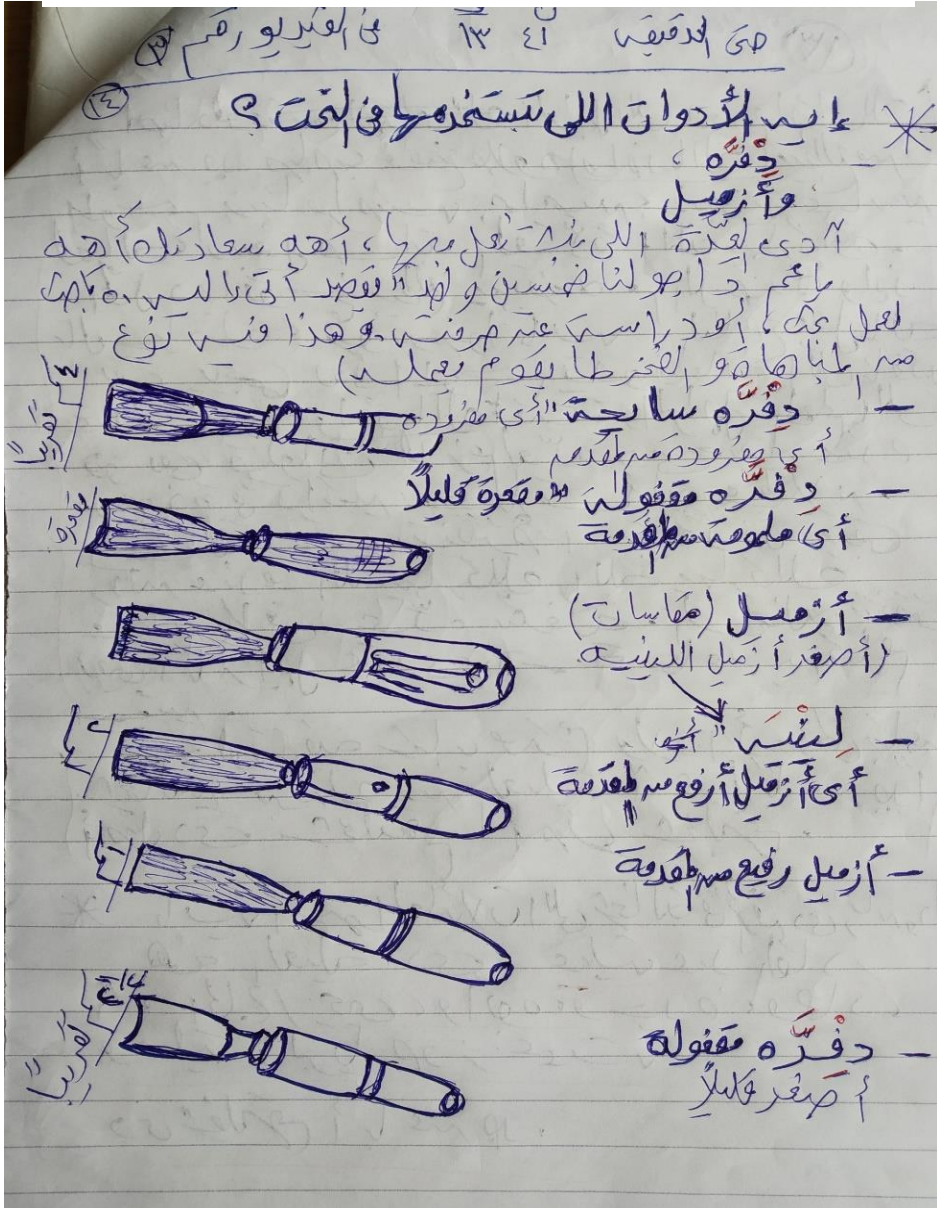 حتى الدقيقة ٤١ ١٣ في الفيديو رقم (٣)
(١٤)
إيه الأدوات اللي بتستخدمها في النحت ؟
- دِفْرَّه ،
وأزميل
آدي العِدَّة اللي بنشتغل بيها ، أهه سعادتك أهه
يا عم دا جولنا خمسين واحد "يقصد أتى إليه ٥٠ باحث
لعمل بحث ، أو دراسة عن حرفته. وهذا فيه نوع
من المباهاة والفخر لما يقوم بعمله)
- دِفْرَّه سايحة "أي مفرودة
أي مفرودة من المقدمة
٤ تقريباً
- دِفْرَّه مقفولة "مقعرة قليلاً
أي ملمومة من المقدمة
مقعرة
- أزميل (مقاسات)
(أصغر أزميل اللينيه
- لِينْيَه "أي
أي أزميل أرفع من المقدمة
٢
- أزميل رفيع من المقدمة
١
- دِفْرَّه مقفولة
أصغر قليلاً
تقريباً